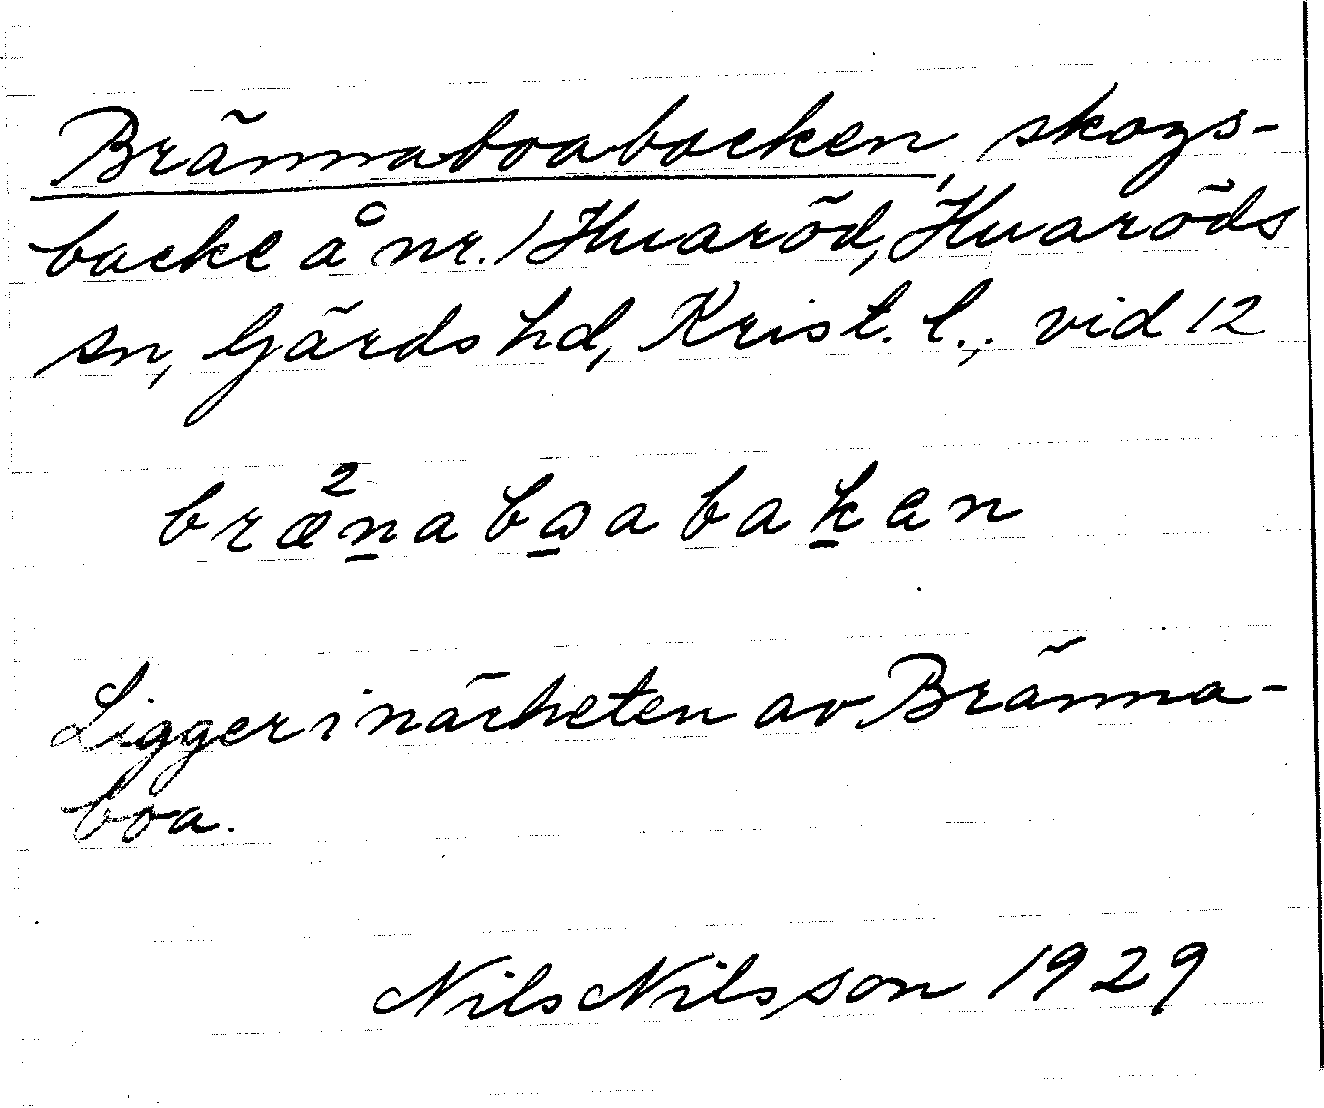 Brännaboabacken, skogs-
backe å nr. 1 Huaröd, Huaröds
sn, Gärds hd, Krist. l., vid 12
bræ²n̲abɷ̲abak̲an
Ligger i närheten av Bränna-
boa.
Nils Nilsson 1929